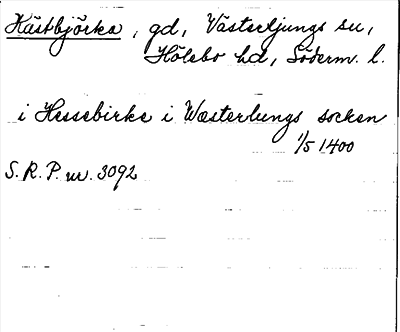 Hästbjörka, gd, Västerljungs sn,
Hölebo hd, Söderm. l.
i Hessebirke i Wæsterlungs socken
1/5 1400
S. R. P. nr. 3092